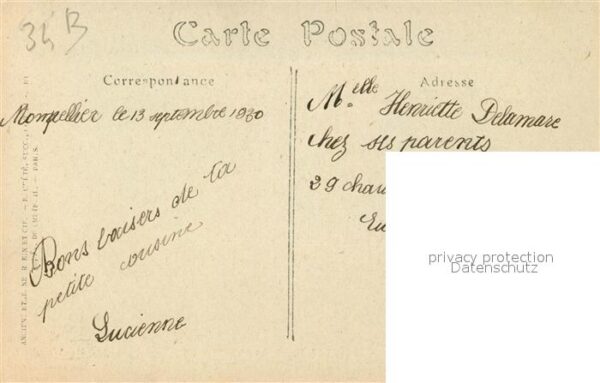 34 B
Carte Postale
Correspondance
Adresse
Monpellier le 13 septembre 1930
Bons baisers de ta
petite cousine
Lucienne
Melle Henriette Delamare
chez ses parents
29
privacy protection
Datenschutz